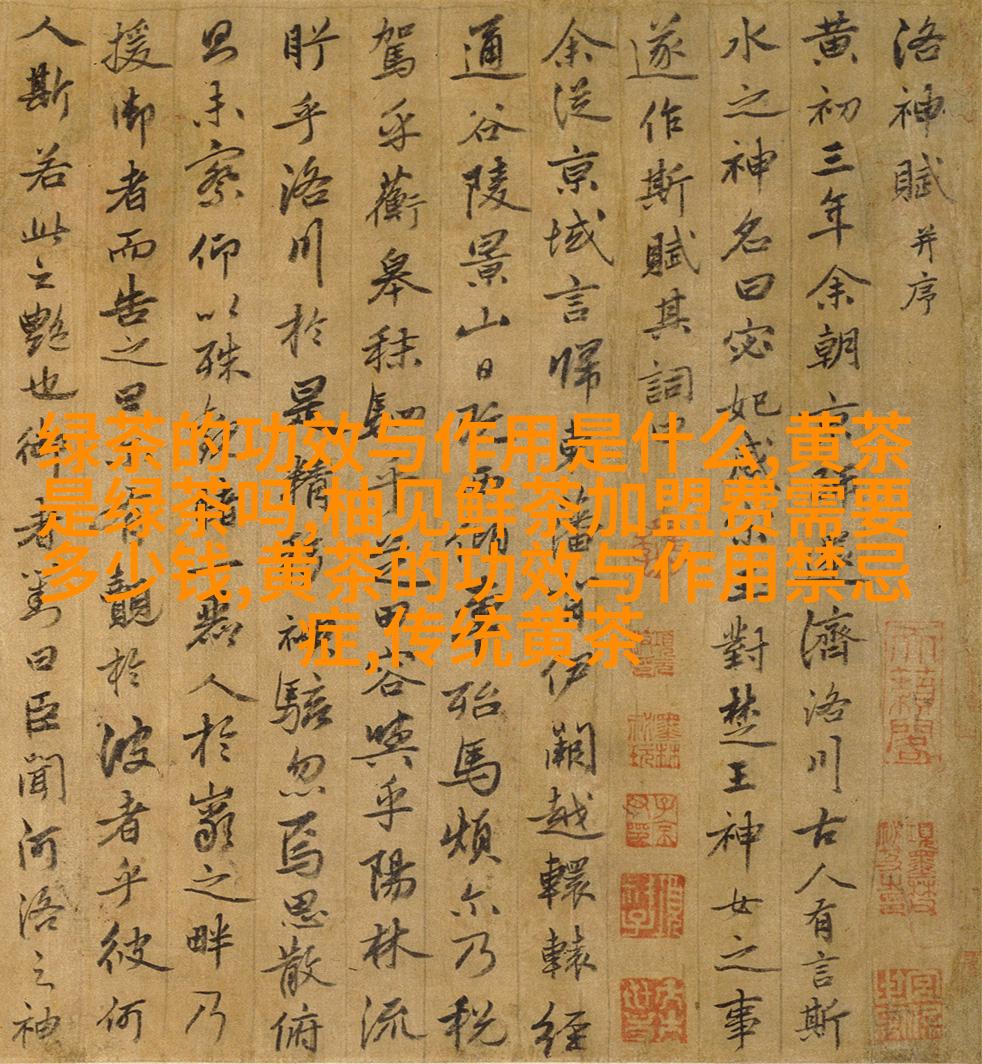 洛神賦并序
黄初三年余朝京師還濟洛川古人有言斯
水之神名曰宓妃感宋玉對楚王神女之事
遂作斯賦其詞曰
余從京域言歸東藩背伊闕越轘轅經
通谷陵景山日既西傾車殆馬煩尒乃税
駕乎蘅皋秣駟乎芝田容與乎陽林流
眄乎洛川於是精移神駭忽焉思散俯
則未察仰以殊觀睹一麗人於巖之畔乃
援御者而告之曰爾有覿於彼者乎彼何
人斯若此之艷也御者對曰臣聞河洛之神
绿茶的功效与作用是什么,黄茶
是绿茶吗,柚见鲜茶加盟费需要
多少钱,黄茶的功效与作用禁忌
症,传统黄茶